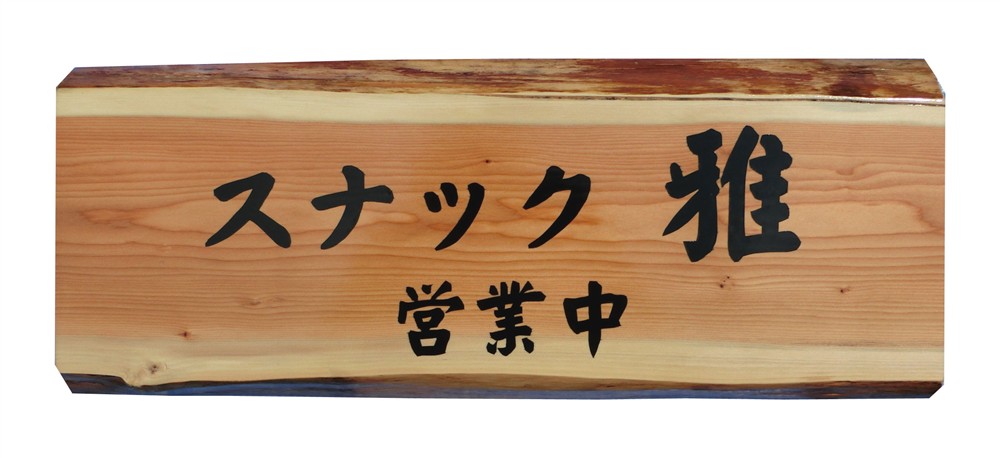 スナック 雅
営業中